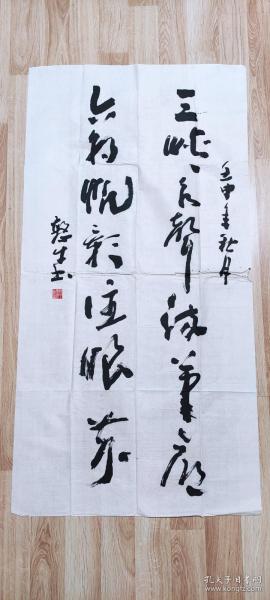 壬申年秋月
三峡江聲流筆底
六朝帆影注眼前
书
孔夫子旧书网